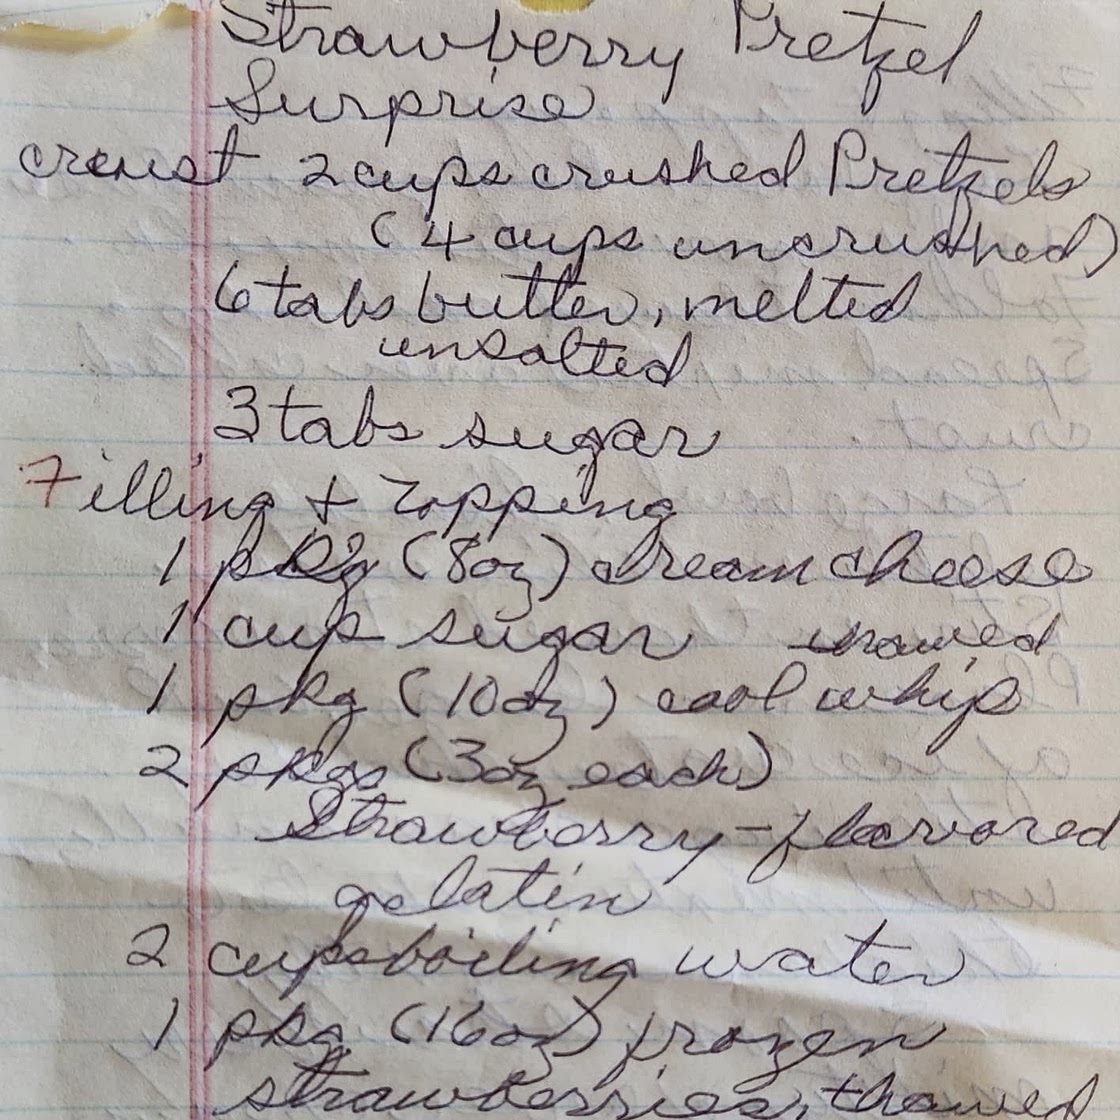 Strawberry Pretzel
Surprise
crust 2 cups crushed Pretzels
(4 cups uncrushed)
6 tabs butter, melted
unsalted
3 tabs sugar
Filling + Topping
1 pkg (8oz) cream cheese
1 cup sugar thawed
1 pkg (10oz) cool whip
2 pkgs (3oz each)
Strawberry-flavored
gelatin
2 cups boiling water
1 pkg (16oz) frozen
strawberries, thawed